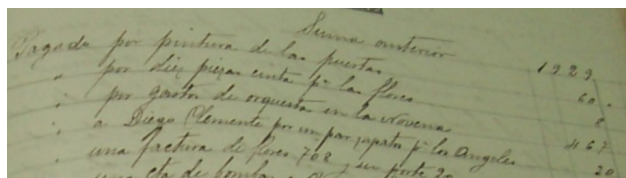 Suma anterior 1929.
Pagado por pintura de las puertas 60.
" por diez piezas cinta pa las flores 8
" por gastos de orquesta en la Novena 467
" a Diego Clemente por un par zapatos pa los Angeles 20
" una factura de flores 708 y su porte 20
una cta de bomba